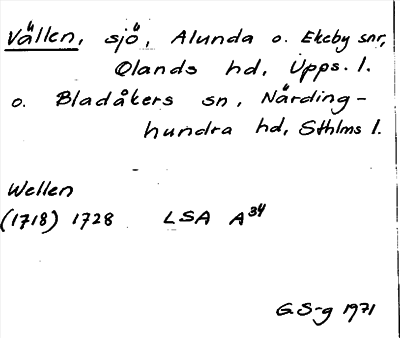 Vällen, sjö, Alunda o. Ekeby snr,
Olands hd, Upps. l.
o. Bladåkers sn, Närding-
hundra hd, Sthlms l.
Wellen
(1718) 1728 LSA A³⁴
GS-g 1971